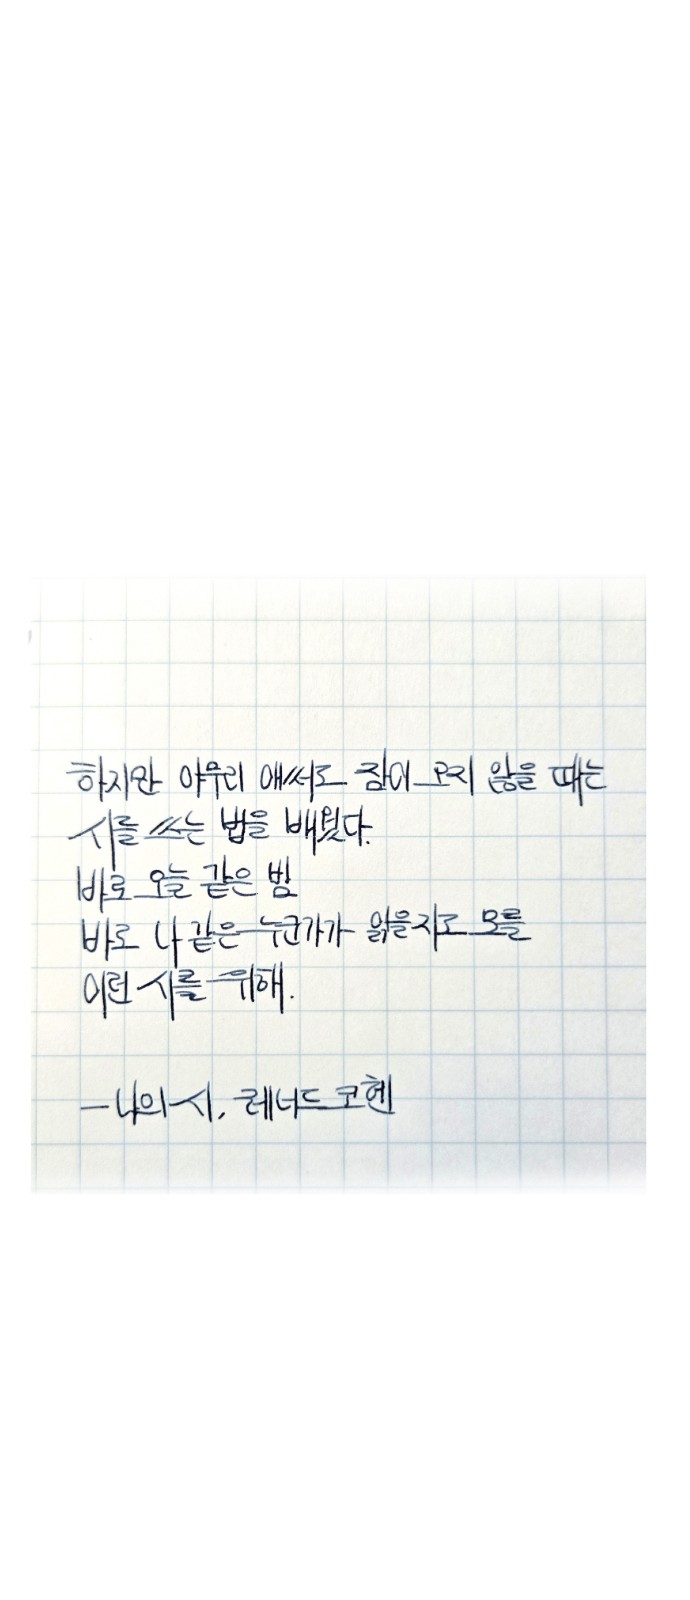 하지만 아무리 애써도 잠이 오지 않을 때는
시를 쓰는 법을 배웠다.
바로 오늘 같은 밤
바로 나 같은 누군가가 읽을지도 모를
이런 시를 위해.
— 나의 시, 레너드 코헨